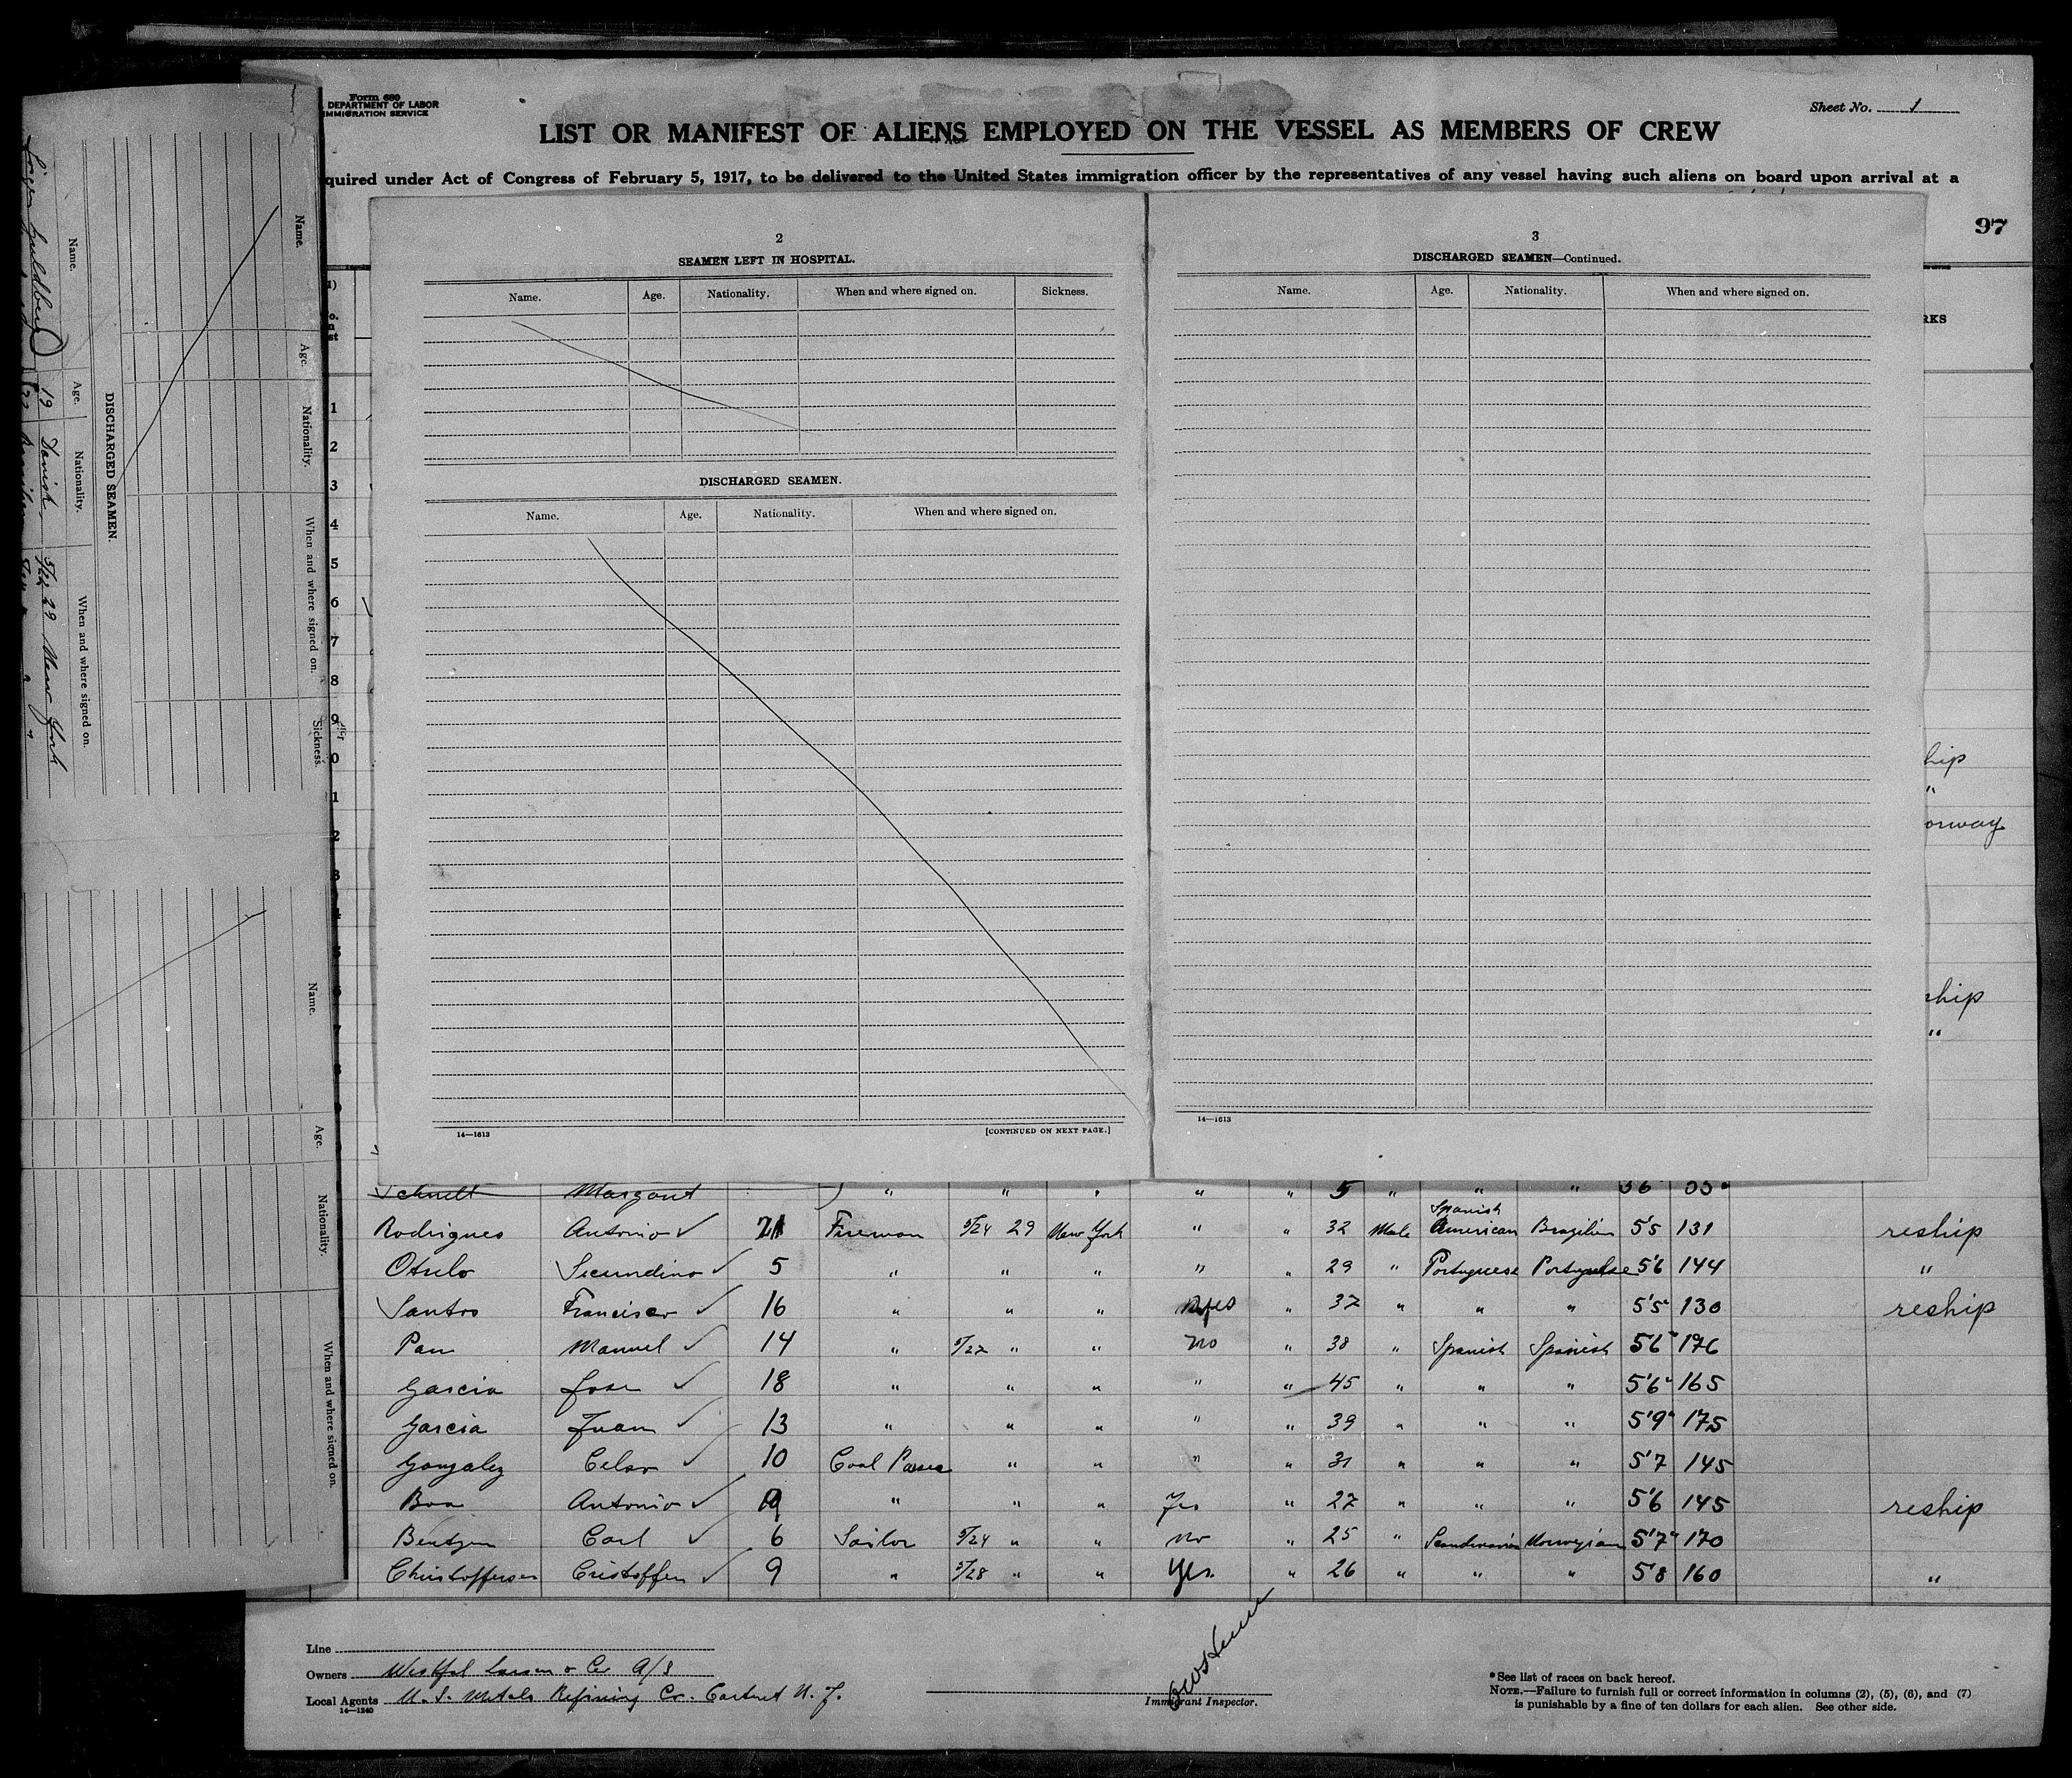 Form 680
DEPARTMENT OF LABOR
IMMIGRATION SERVICE
Sheet No. 1
LIST OR MANIFEST OF ALIENS EMPLOYED ON THE VESSEL AS MEMBERS OF CREW
quired under Act of Congress of February 5, 1917, to be delivered to the United States immigration officer by the representatives of any vessel having such aliens on board upon arrival at a
97
RKS
2
SEAMEN LEFT IN HOSPITAL.
Name. Age. Nationality. When and where signed on. Sickness.
DISCHARGED SEAMEN.
Name. Age. Nationality. When and where signed on.
14—1613 [CONTINUED ON NEXT PAGE.]
3
DISCHARGED SEAMEN—Continued.
Name. Age. Nationality. When and where signed on.
14—1613
Name. Age. Nationality. When and where signed on. Sickness.
DISCHARGED SEAMEN.
Name. Age. Nationality. When and where signed on.
19 Danish 29 New York
Name. Age. Nationality. When and where signed on.
1
2
3
4
5
6
7
8
9
0
1
2
3
hip
"
orway
ship
"
Schnell Margaut " " " " " 5 " " "
Rodrigues Antonio ✓ 21 Fireman 5/24 29 New York " " 32 Male Spanish American Brazilian 5'5 131 reship
Otulo Secundino ✓ 5 " " " " " 29 " Portuguese Portuguese 5'6 144 "
Santos Francisco ✓ 16 " " " yes " 37 " " " 5'5" 130 reship
Pan Manuel ✓ 14 " 5/22 " " no " 38 " Spanish Spanish 5'6" 176
Garcia Jose ✓ 18 " " " " " 45 " " " 5'6" 165
Garcia Juan ✓ 13 " " " " " 39 " " " 5'9" 175
Gonzalez Celso ✓ 10 Coal Passer " " " " 31 " " " 5'7 145
Boa Antonio ✓ 19 " " " Yes " 27 " " " 5'6 145 reship
Bentzen Carl ✓ 6 Sailor 5/24 " " no " 25 " Scandinavian Norwegian 5'7" 170
Christoffersen Cristoffer ✓ 9 " 5/28 " " Yes " 26 " " " 5'8 160 "
Line
Owners Westfal Larsen & Co A/S
Local Agents U. S. Metals Refining Co. Carteret N. J.
14—1240
Immigrant Inspector.
*See list of races on back hereof.
NOTE.—Failure to furnish full or correct information in columns (2), (5), (6), and (7)
is punishable by a fine of ten dollars for each alien. See other side.